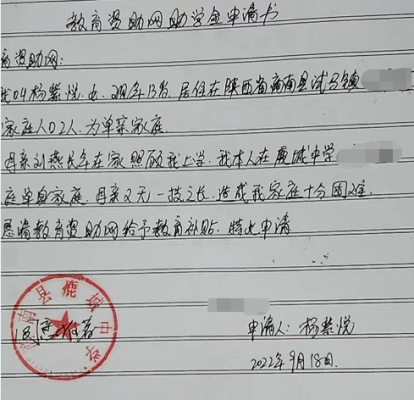 教育资助网助学金申请书
育资助网:
我叫杨紫悦,女,现年13岁,居住在陕西省商南县试马镇
家庭人口2人,为单亲家庭.
母亲刘燕长年在家照顾我上学,我本人在鹿城中学
庭单身家庭,母亲又无一技之长,造成我家庭十分困难.
恳请教育资助网给予教育补贴,特此申请
南县鹿城中学
同意
申请人:杨紫悦
2022年9月18日.